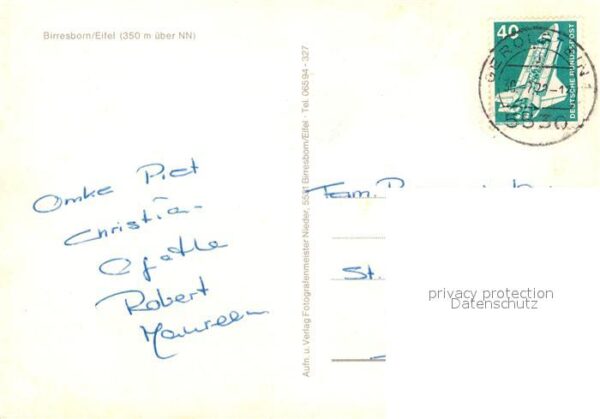 Birresborn/Eifel (350 m über NN)
Omke Piet
Christia-
Agathe
Robert
Maureen
Aufn. u. Verlag Fotografenmeister Nieder, 5531 Birresborn/Eifel · Tel. 06594 - 327
40
DEUTSCHE BUNDESPOST
GEROLSTEIN 1
5530
Fam.
St.
privacy protection
Datenschutz